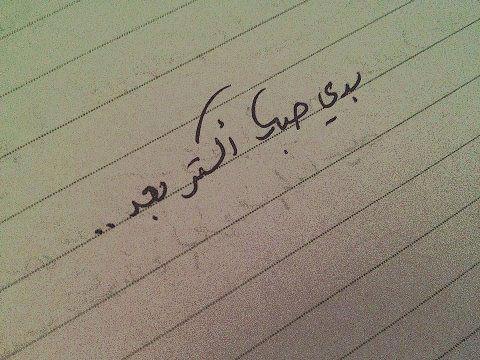 بدي حبك اكتر بعد ..